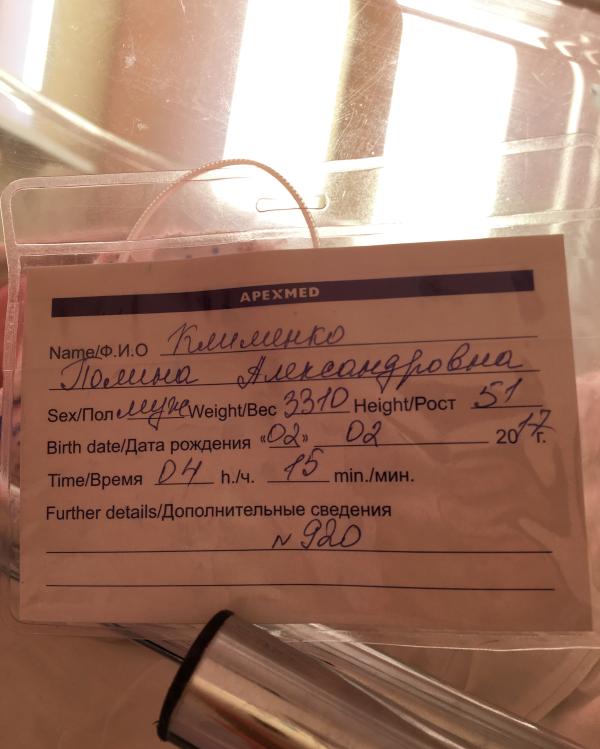 APEXMED
Name/Ф.И.О Клименко
Полина Александровна
Sex/Пол муж Weight/Вес 3310 Height/Рост 51
Birth date/Дата рождения «02» 02 2017г.
Time/Время 04 h./ч. 15 min./мин.
Further details/Дополнительные сведения
№920